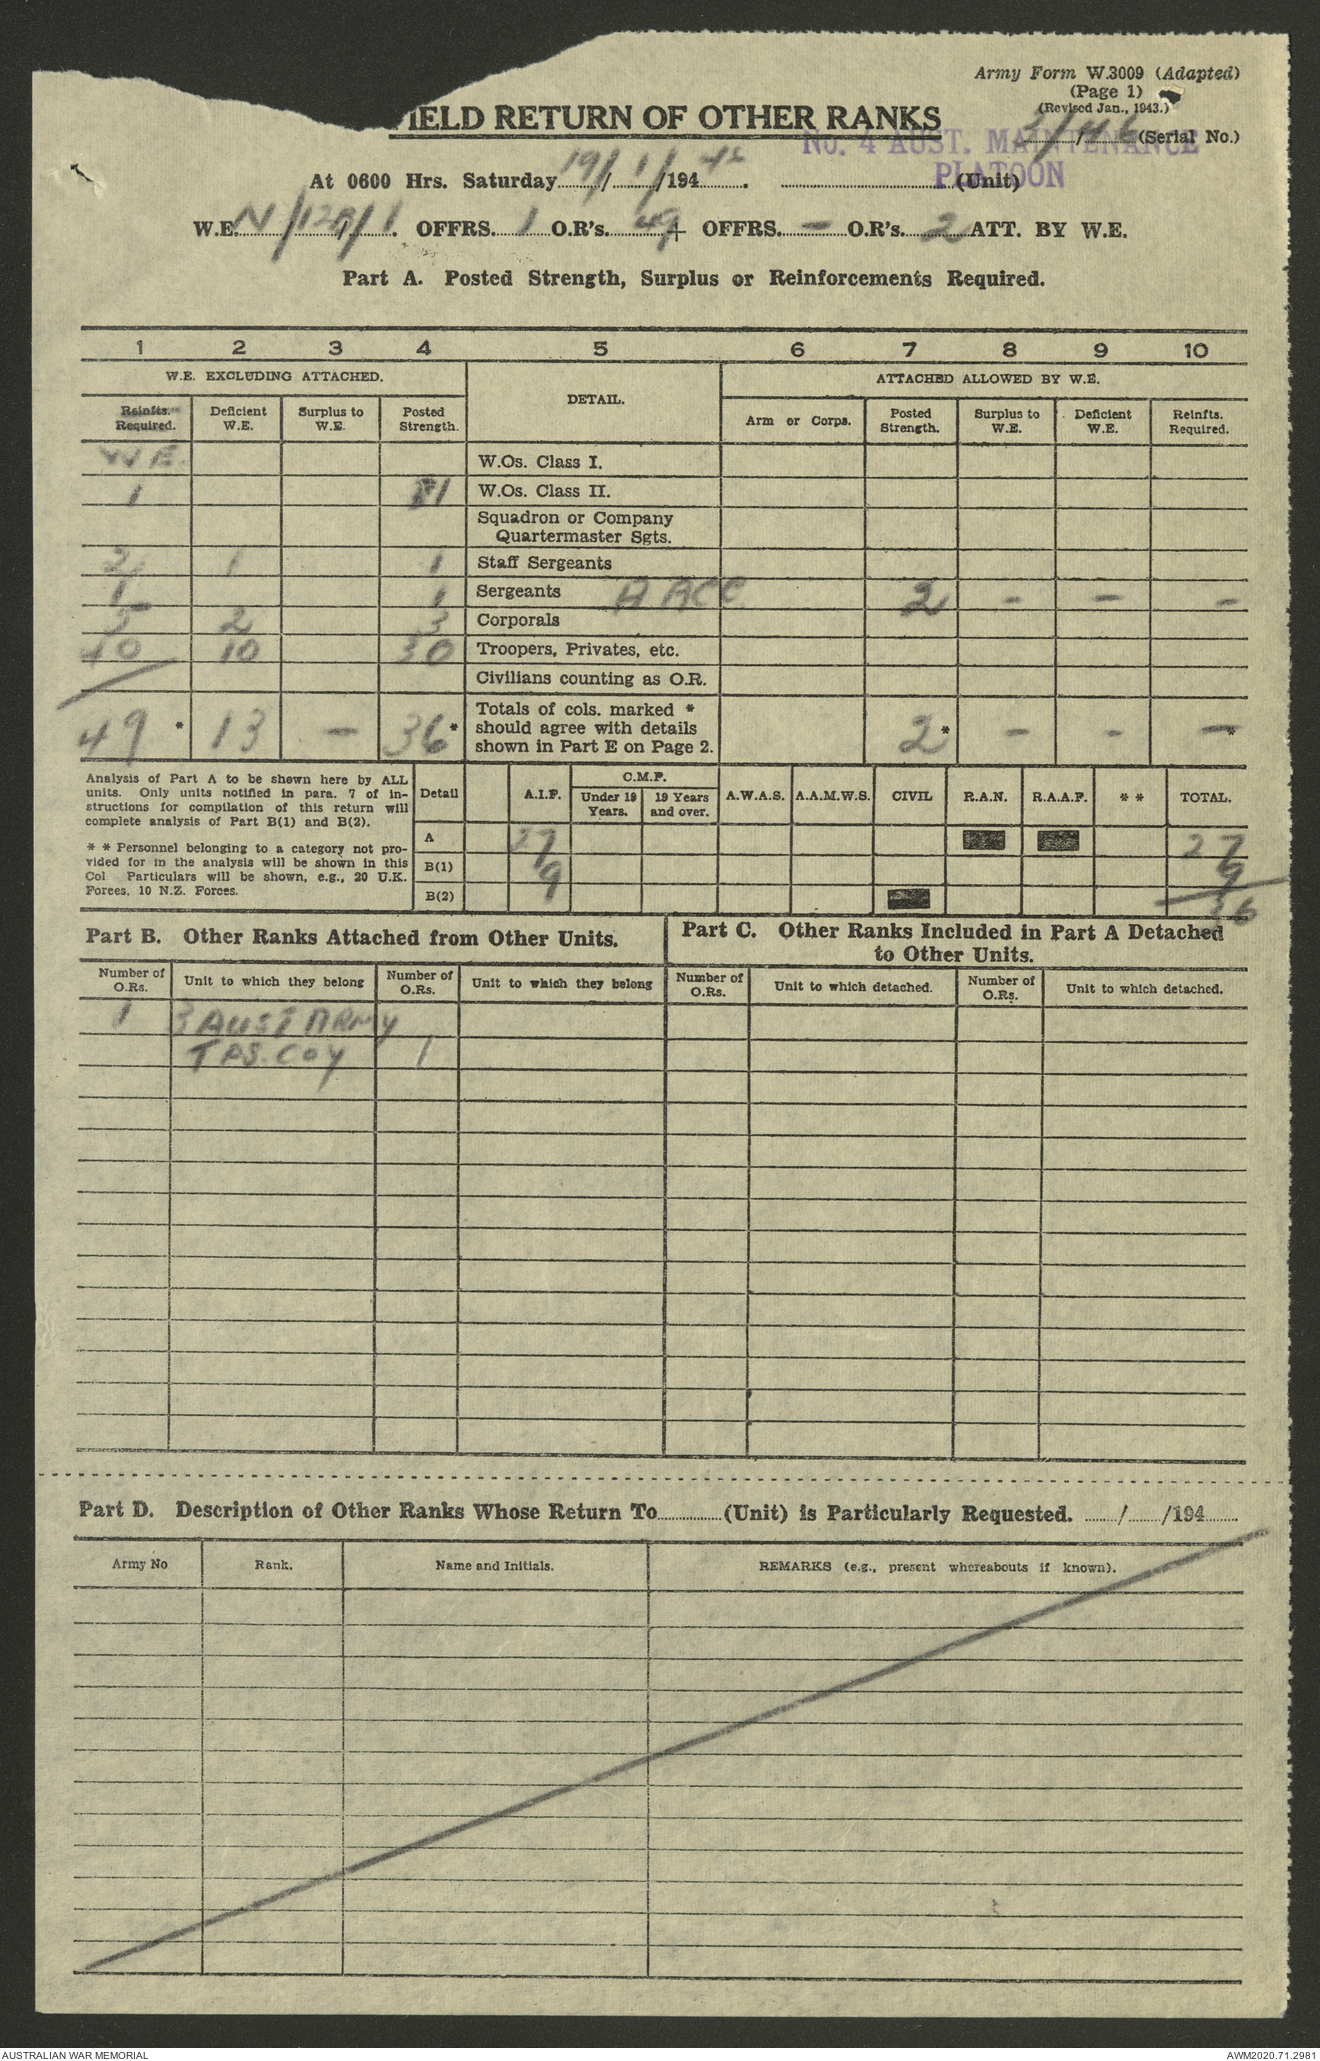 Army Form W.3009 (Adapted)
(Page 1)
(Revised Jan., 1943.)
FIELD RETURN OF OTHER RANKS
3/46 (Serial No.)
No. 4 AUST. MAINTENANCE
PLATOON
At 0600 Hrs. Saturday 19/1/194 (Unit)
W.E. OFFRS. 1 O.R's. 49 + OFFRS. – O.R's. 2 ATT. BY W.E.
Part A. Posted Strength, Surplus or Reinforcements Required.
1 2 3 4 5 6 7 8 9 10
W.E. EXCLUDING ATTACHED. DETAIL. ATTACHED ALLOWED BY W.E.
Reinfts. Required. Deficient W.E. Surplus to W.E. Posted Strength. Arm or Corps. Posted Strength. Surplus to W.E. Deficient W.E. Reinfts. Required.
W E. W.Os. Class I.
1 1 W.Os. Class II.
Squadron or Company
Quartermaster Sgts.
2 1 1 Staff Sergeants
1 1 Sergeants A ACC 2 – – –
5 2 3 Corporals
40 10 30 Troopers, Privates, etc.
Civilians counting as O.R.
Totals of cols. marked *
should agree with details
shown in Part E on Page 2.
49 * 13 – 36 * 2 * – – – *
Analysis of Part A to be shown here by ALL
units. Only units notified in para. 7 of in-
structions for compilation of this return will
complete analysis of Part B(1) and B(2).
* * Personnel belonging to a category not pro-
vided for in the analysis will be shown in this
Col. Particulars will be shown, e.g., 20 U.K.
Forces, 10 N.Z. Forces.
C.M.F.
Detail A.I.F. Under 19 Years. 19 Years and over. A.W.A.S. A.A.M.W.S. CIVIL R.A.N. R.A.A.F. * * TOTAL.
A 27 27
B(1) 9 9
B(2) 36
Part B. Other Ranks Attached from Other Units.
Part C. Other Ranks Included in Part A Detached
to Other Units.
Number of O.Rs. Unit to which they belong Number of O.Rs. Unit to which they belong Number of O.Rs. Unit to which detached. Number of O.Rs. Unit to which detached.
1 3 AUST ARMY
TPS. COY 1
Part D. Description of Other Ranks Whose Return To (Unit) is Particularly Requested. / /194
Army No Rank. Name and Initials. REMARKS (e.g., present whereabouts if known).
AUSTRALIAN WAR MEMORIAL AWM2020.71.2981